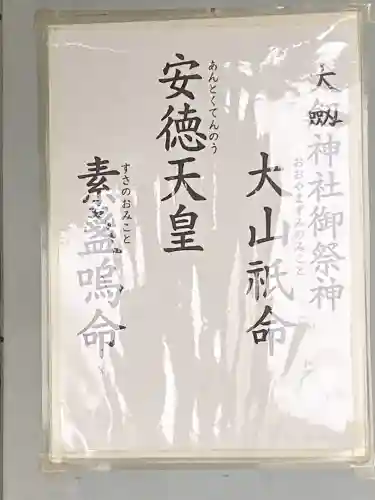 大劔神社御祭神
大山祇命
おおやまずみのみこと
安徳天皇
あんとくてんのう
素盞嗚命
すさのおみこと